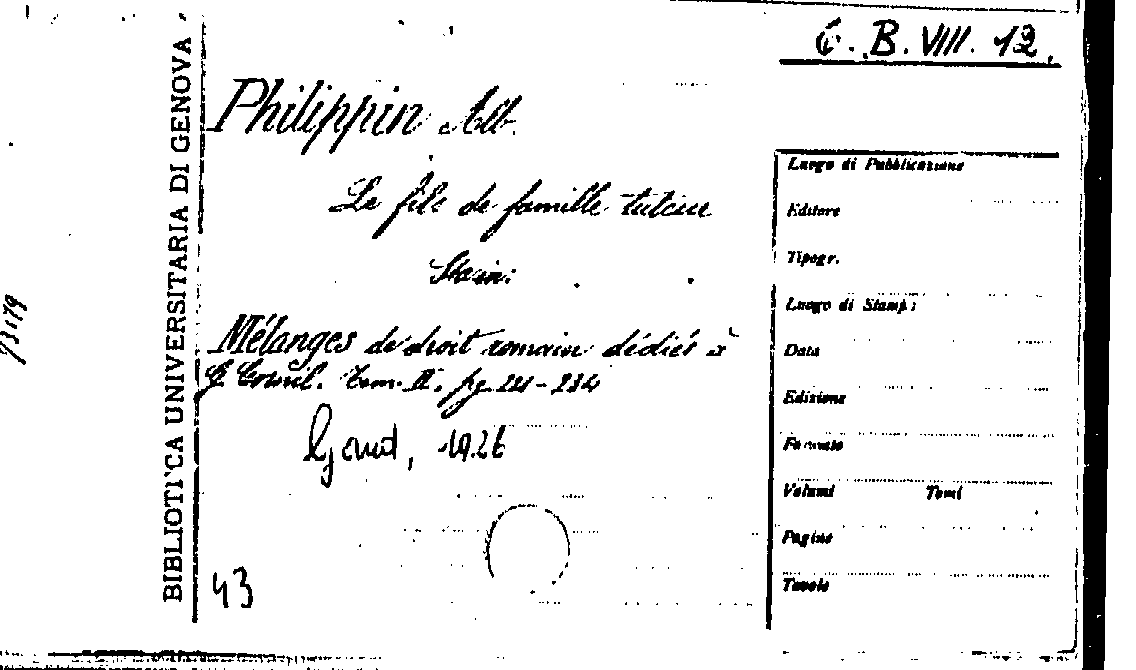 6. B. VIII. 12.
Philippin Alb.
Le fils de famille tuteur
Mélanges de droit romain dédiés à
G. Cornil. Tom. II. pg. 221-234
Gand, 1926
43
BIBLIOTECA UNIVERSITARIA DI GENOVA
Luogo di Pubblicazione
Editore
Tipogr.
Luogo di Stamp:
Data
Edizione
Formato
Volumi Tomi
Pagine
Tavole